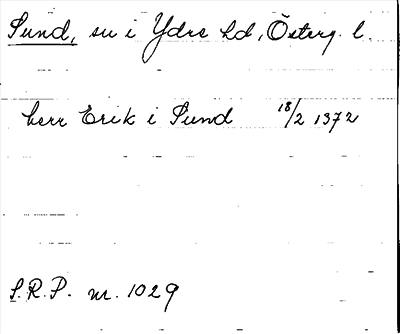 Sund, sn i Ydre hd, Österg. l.
herr Erik i Sund 18/2 1372
S.R.P. nr. 1029